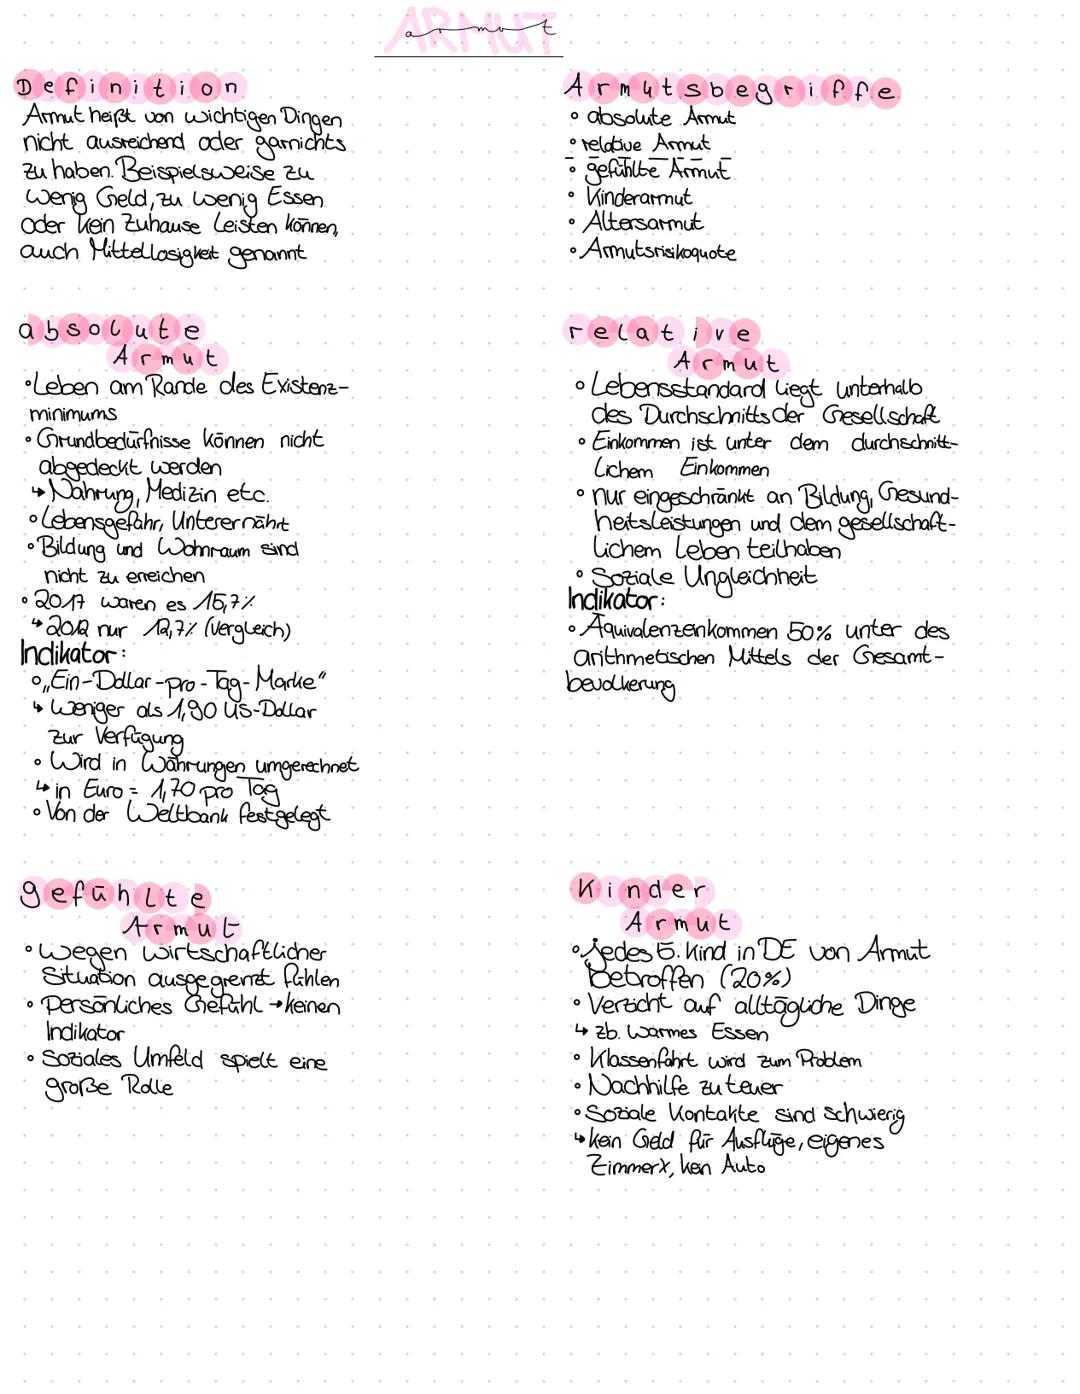 ARMUT
armut
Definition
Armut heißt von wichtigen Dingen
nicht ausreichend oder garnichts
zu haben. Beispielsweise zu
wenig Geld, zu wenig Essen
oder kein Zuhause Leisten können,
auch Mittellosigkeit genannt
Armutsbegriffe
◦ absolute Armut
◦ relative Armut
◦ gefühlte Armut
◦ Kinderarmut
◦ Altersarmut
◦ Armutsrisikoquote
absolute
Armut
◦ Leben am Rande des Existenz-
minimums
◦ Grundbedürfnisse können nicht
abgedeckt werden
↳ Nahrung, Medizin etc.
◦ Lebensgefahr, Unterernährt
◦ Bildung und Wohnraum sind
nicht zu erreichen
◦ 2017 waren es 15,7%
↳ 2012 nur 12,7% (Vergleich)
Indikator:
◦ „Ein-Dollar-pro-Tag-Marke"
↳ weniger als 1,90 US-Dollar
zur Verfügung
◦ Wird in Währungen umgerechnet
↳ in Euro = 1,70 pro Tag
◦ Von der Weltbank festgelegt
relative
Armut
◦ Lebensstandard liegt unterhalb
des Durchschnitts der Gesellschaft
◦ Einkommen ist unter dem durchschnitt-
lichem Einkommen
◦ nur eingeschränkt an Bildung, Gesund-
heitsleistungen und dem gesellschaft-
lichem Leben teilhaben
◦ Soziale Ungleichheit
Indikator:
◦ Äquivalenzeinkommen 50% unter des
arithmetischen Mittels der Gesamt-
bevölkerung
gefühlte
Armut
◦ wegen wirtschaftlicher
Situation ausgegrenzt fühlen
◦ Persönliches Gefühl → keinen
Indikator
◦ Soziales Umfeld spielt eine
große Rolle
Kinder
Armut
◦ jedes 5. Kind in DE von Armut
betroffen (20%)
◦ Verzicht auf alltägliche Dinge
↳ zb. Warmes Essen
◦ Klassenfahrt wird zum Problem
◦ Nachhilfe zu teuer
◦ Soziale Kontakte sind schwierig
↳ kein Geld für Ausflüge, eigenes
Zimmer x, kein Auto